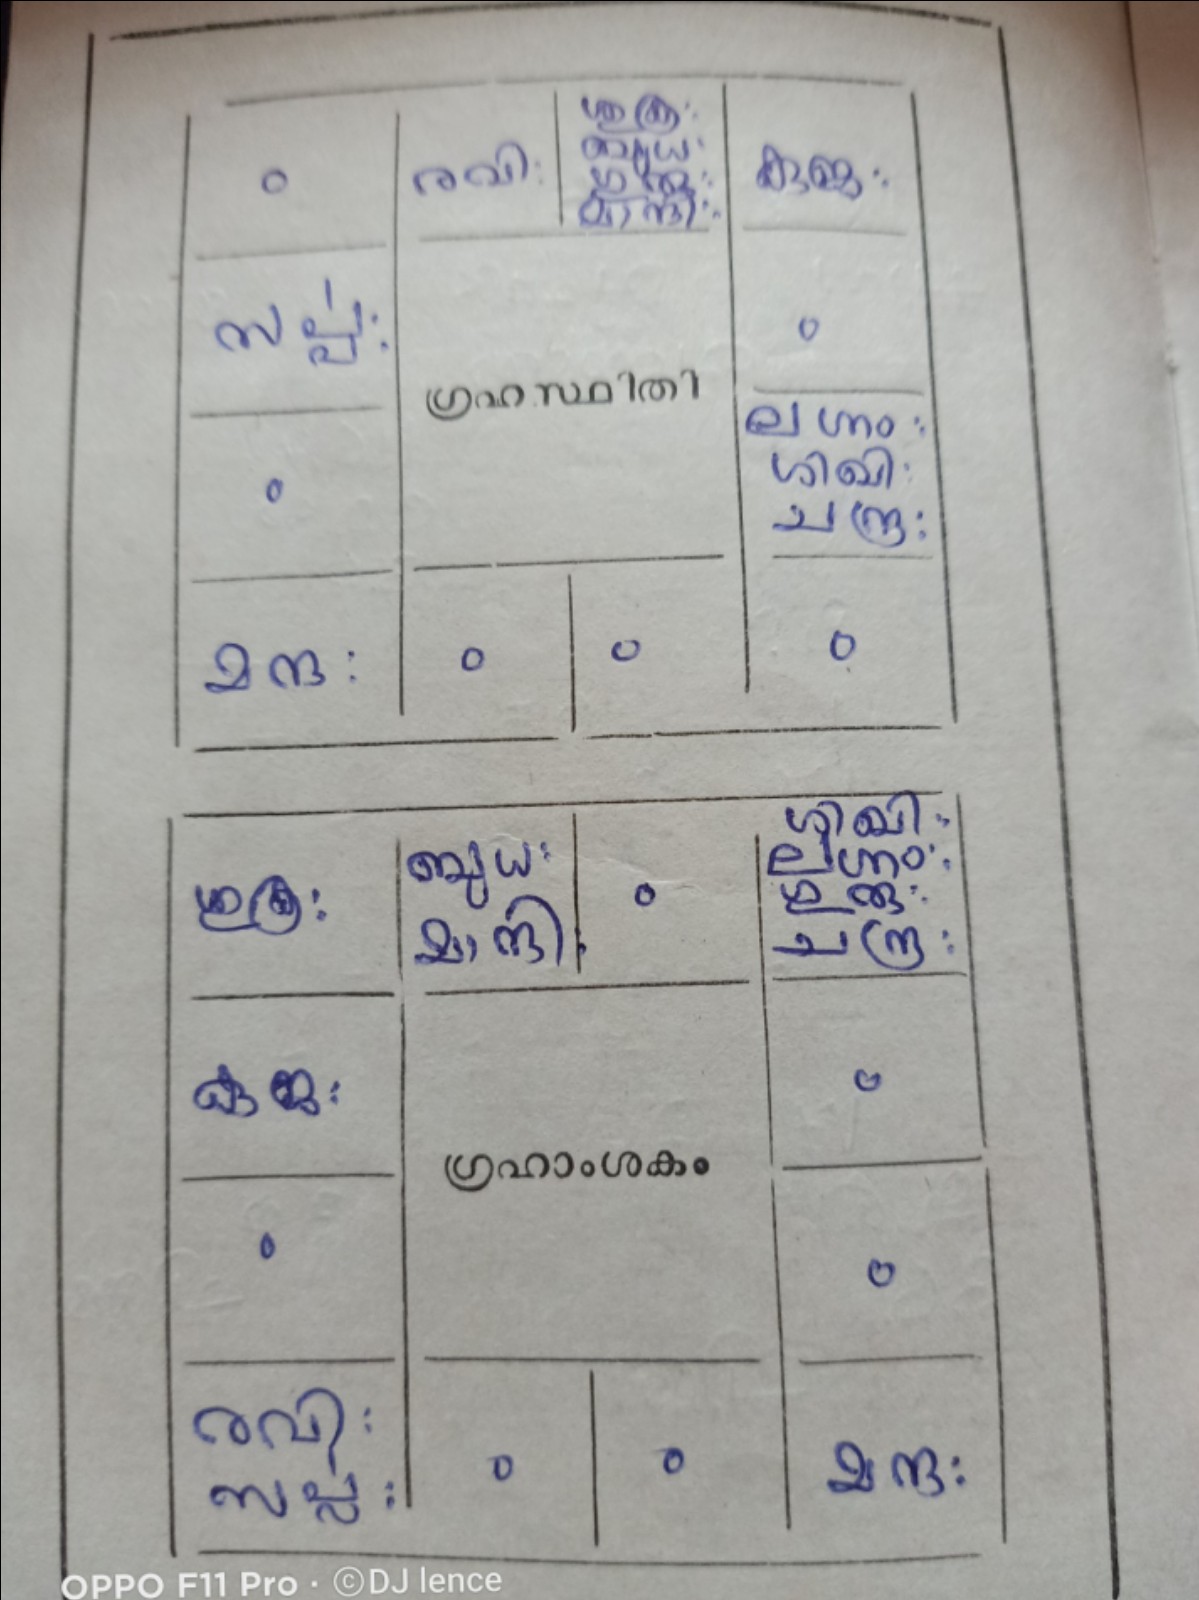 o
രവി:
ശുക്ര:
ബുധ:
ഗുരു:
മാന്ദി:
കുജ:
സർപ്പ:
o
ഗ്രഹസ്ഥിതി
ലഗ്നം:
ശിഖി:
ചന്ദ്ര:
o
മന്ദ:
o
o
o
ശുക്ര:
ബുധ:
മാന്ദി:
o
ശിഖി:
ലഗ്നം:
ഗുരു:
ചന്ദ്ര:
കുജ:
o
ഗ്രഹാംശകം
o
o
രവി:
സർപ്പ:
o
o
മന്ദ:
OPPO F11 Pro · ©DJ lence